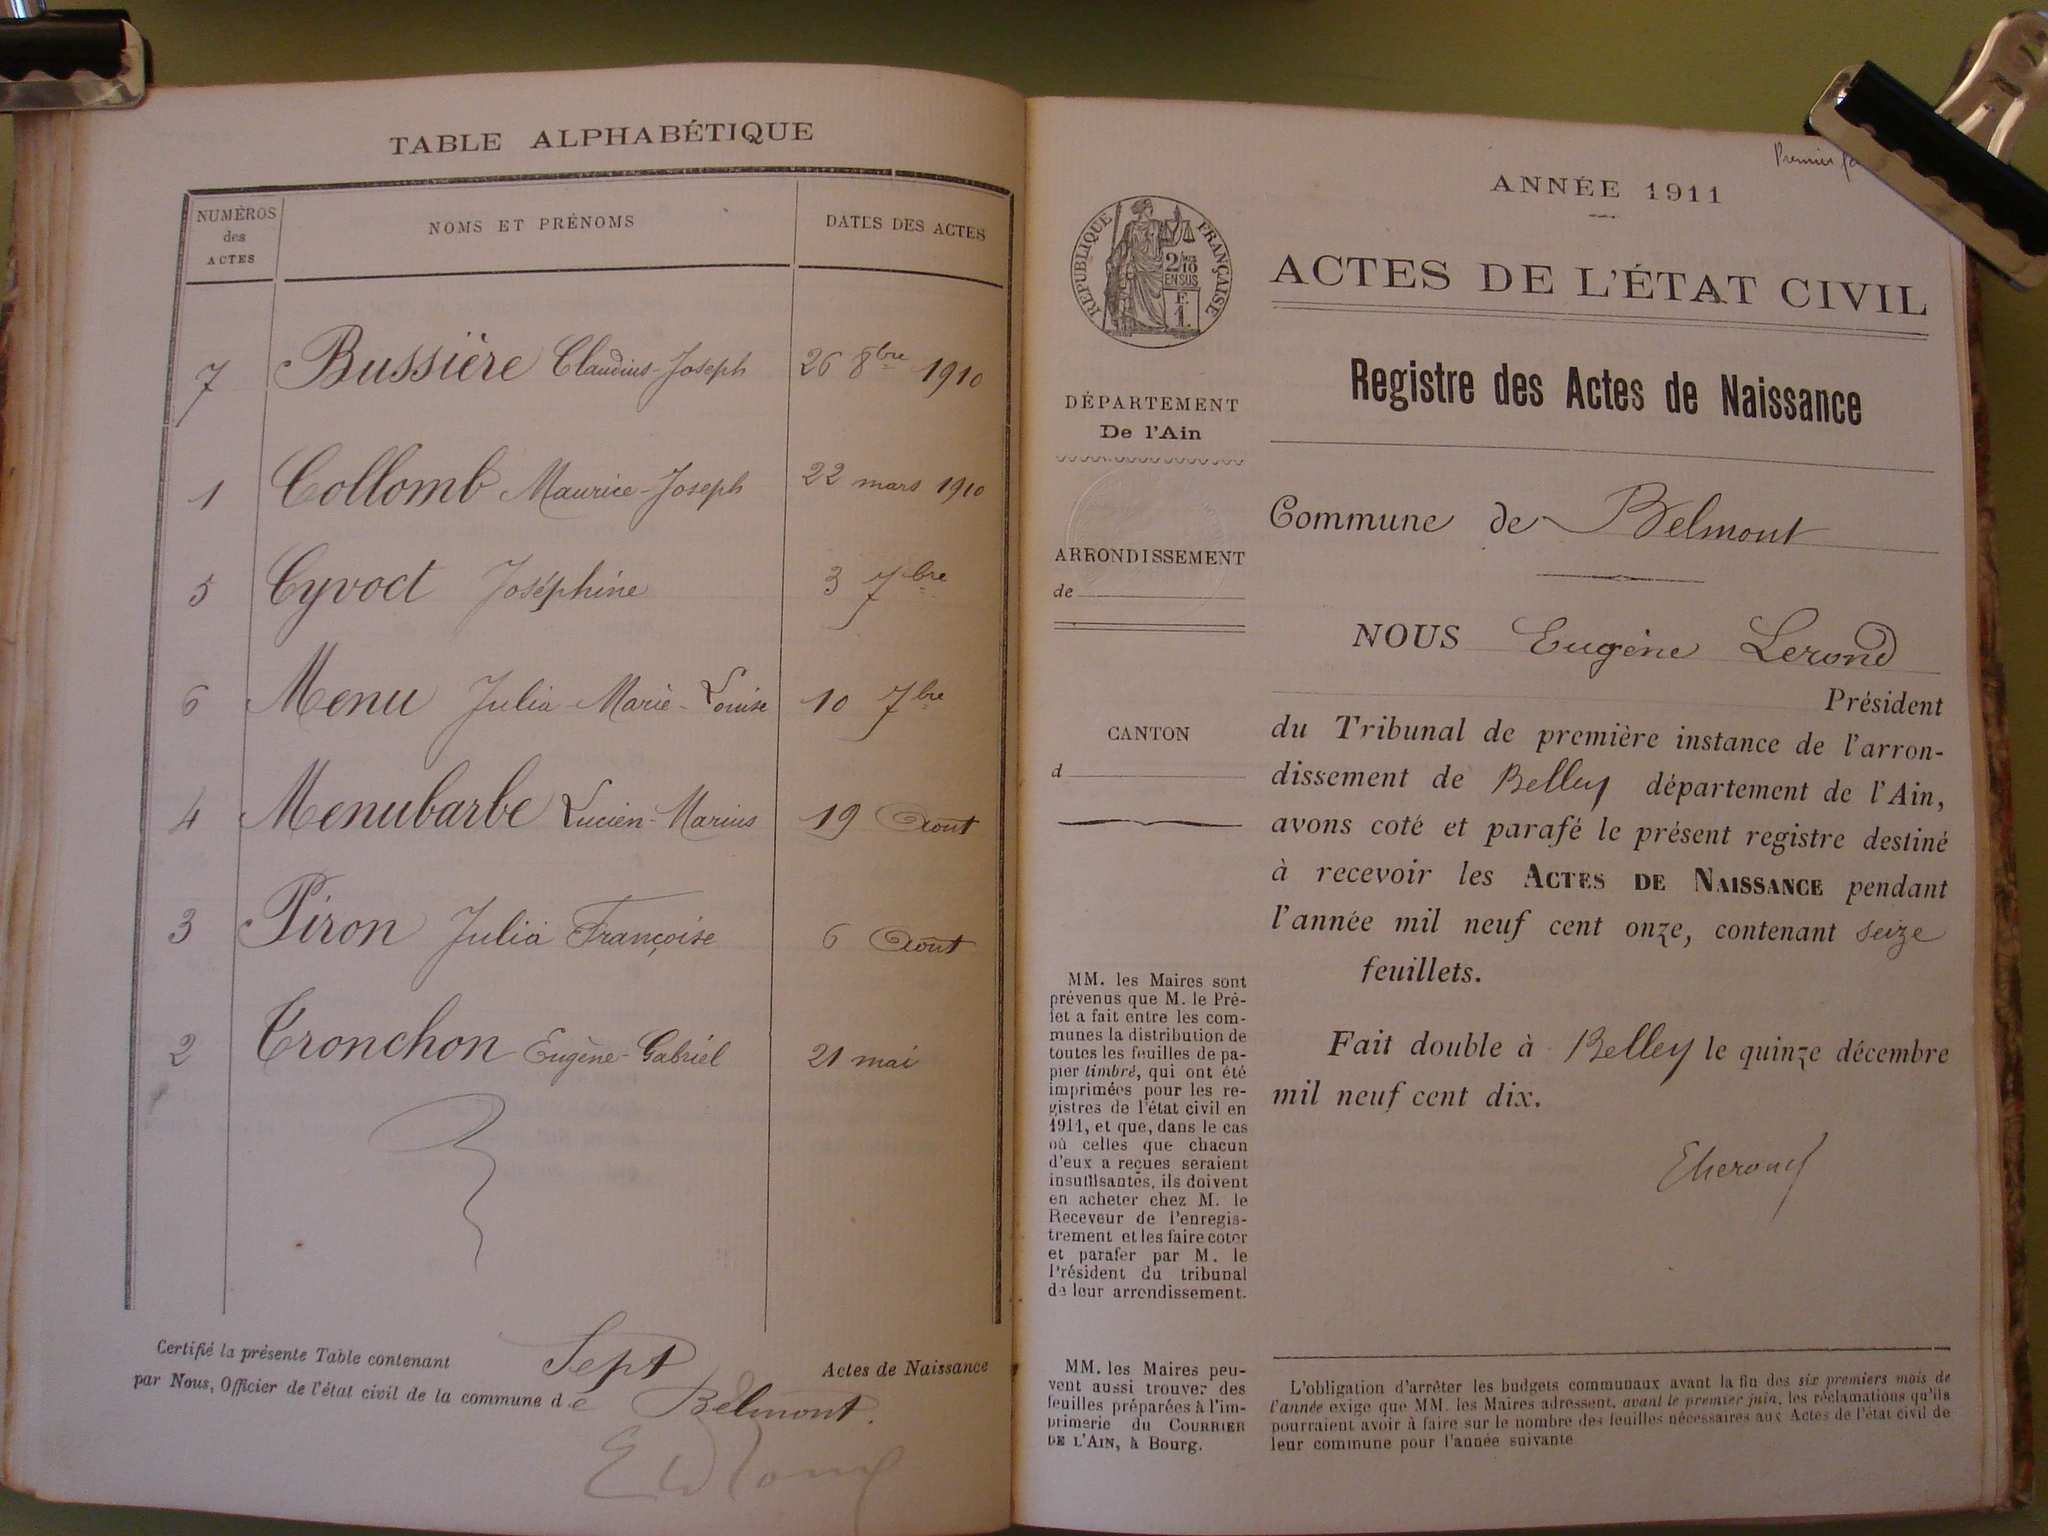 TABLE ALPHABÉTIQUE
NUMÉROS
des
ACTES
NOMS ET PRÉNOMS
DATES DES ACTES
7 Bussière Claudius-Joseph 26 8bre 1910
1 Collomb Maurice-Joseph 22 mars 1910
5 Cyvoct Joséphine 3 7bre
6 Menu Julia-Marie-Louise 10 7bre
4 Menubarbe Lucien-Marius 19 Aout
3 Piron Julia Françoise 6 Aout
2 Tronchon Eugène-Gabriel 21 mai
Certifié la présente Table contenant Sept Actes de Naissance
par Nous, Officier de l'état civil de la commune de Belmont.
Premier
ANNÉE 1911
RÉPUBLIQUE FRANÇAISE
2/10
EN SUS
F.
1.
ACTES DE L'ÉTAT CIVIL
Registre des Actes de Naissance
DÉPARTEMENT
De l'Ain
ARRONDISSEMENT
de
CANTON
d
MM. les Maires sont
prévenus que M. le Pré-
fet a fait entre les com-
munes la distribution de
toutes les feuilles de pa-
pier timbré, qui ont été
imprimées pour les re-
gistres de l'état civil en
1911, et que, dans le cas
où celles que chacun
d'eux a reçues seraient
insuffisantes, ils doivent
en acheter chez M. le
Receveur de l'enregis-
trement et les faire coter
et parafer par M. le
Président du tribunal
de leur arrondissement.
MM. les Maires peu-
vent aussi trouver des
feuilles préparées à l'im-
primerie du COURRIER
DE L'AIN, à Bourg.
Commune de Belmont
NOUS Eugène Lerond
Président
du Tribunal de première instance de l'arron-
dissement de Belley département de l'Ain,
avons coté et parafé le présent registre destiné
à recevoir les ACTES DE NAISSANCE pendant
l'année mil neuf cent onze, contenant seize
feuillets.
Fait double à Belley le quinze décembre
mil neuf cent dix.
L'obligation d'arrêter les budgets communaux avant la fin des six premiers mois de
l'année exige que MM. les Maires adressent, avant le premier juin, les réclamations qu'ils
pourraient avoir à faire sur le nombre des feuilles nécessaires aux Actes de l'état civil de
leur commune pour l'année suivante